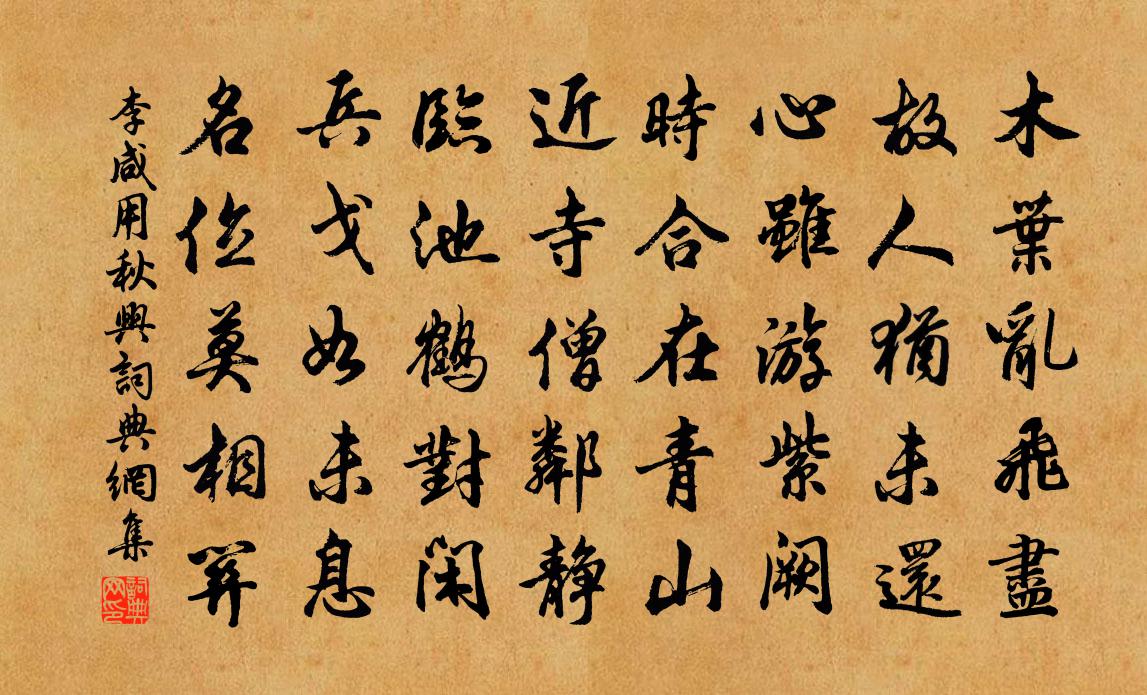 木葉亂飛盡
故人猶未還
心雖游紫闕
時合在青山
近寺僧鄰静
臨池鶴對閑
兵戈如未息
名位莫相關
李咸用秋興詞典網集
詞典网印